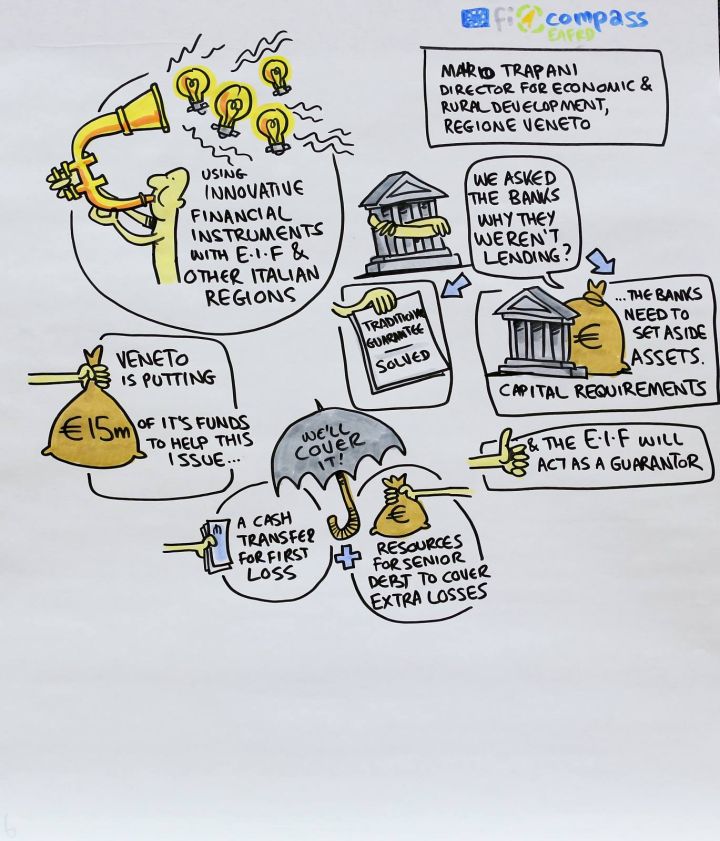 fi compass
EAFRD
MARIO TRAPANI
DIRECTOR FOR ECONOMIC &
RURAL DEVELOPMENT,
REGIONE VENETO
USING
INNOVATIVE
FINANCIAL
INSTRUMENTS
WITH E.I.F &
OTHER ITALIAN
REGIONS
WE ASKED
THE BANKS
WHY THEY
WEREN'T
LENDING?
TRADITIONAL
GUARANTEE
SOLVED
€
...THE BANKS
NEED TO
SET ASIDE
ASSETS.
CAPITAL REQUIREMENTS
VENETO
IS PUTTING
€15m
OF IT'S FUNDS
TO HELP THIS
ISSUE...
WE'LL
COVER
IT!
& THE E.I.F WILL
ACT AS A GUARANTOR
A CASH
TRANSFER
FOR FIRST
LOSS
+
€
RESOURCES
FOR SENIOR
DEBT TO COVER
EXTRA LOSSES
6